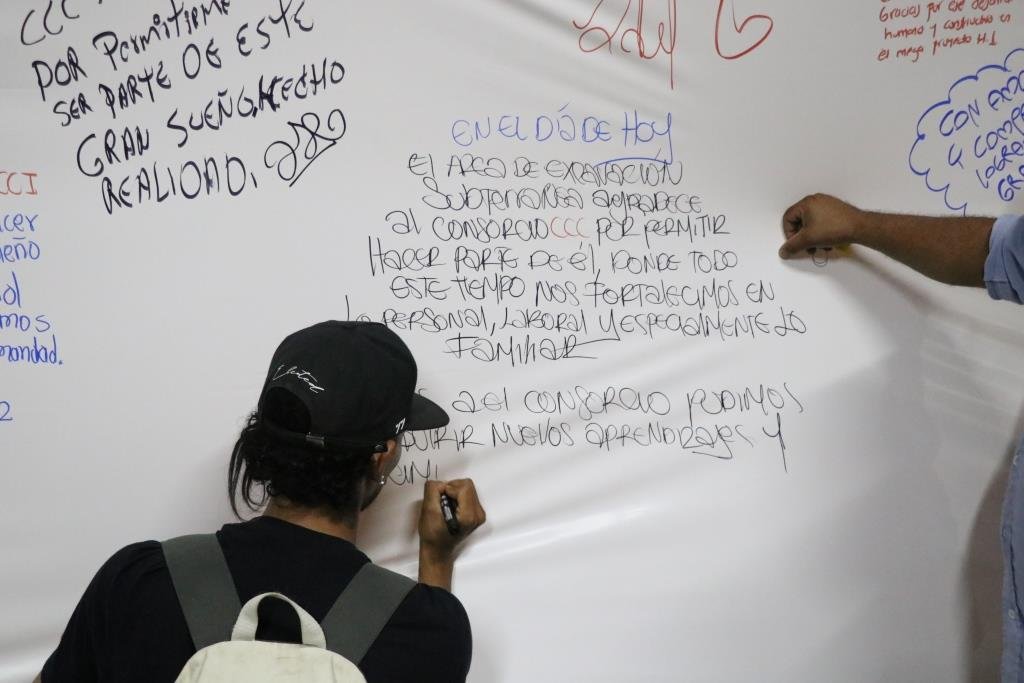 CCC
POR PERMITIRME
SER PARTE DE ESTE
GRAN SUEÑO, HECHO
REALIDAD.
Gracias por ese
humano y constructivo en
el mega proyecto H.I
CON AMOR
LOGRE
CCI
EN EL DÍA DE HOY
EL AREA DE EXCAVACION
SUBTERRANEA AGRADECE
AL CONSORCIO CCC POR PERMITIR
HACER PARTE DE ÉL, DONDE TODO
ESTE TIEMPO NOS FORTALECIMOS EN
LO PERSONAL, LABORAL Y ESPECIALMENTE LO
FAMILIAR
A EL CONSORCIO PUDIMOS
UIRIR NUEVOS APRENDIZAJES Y
cer
eño
mos
mandad.
2